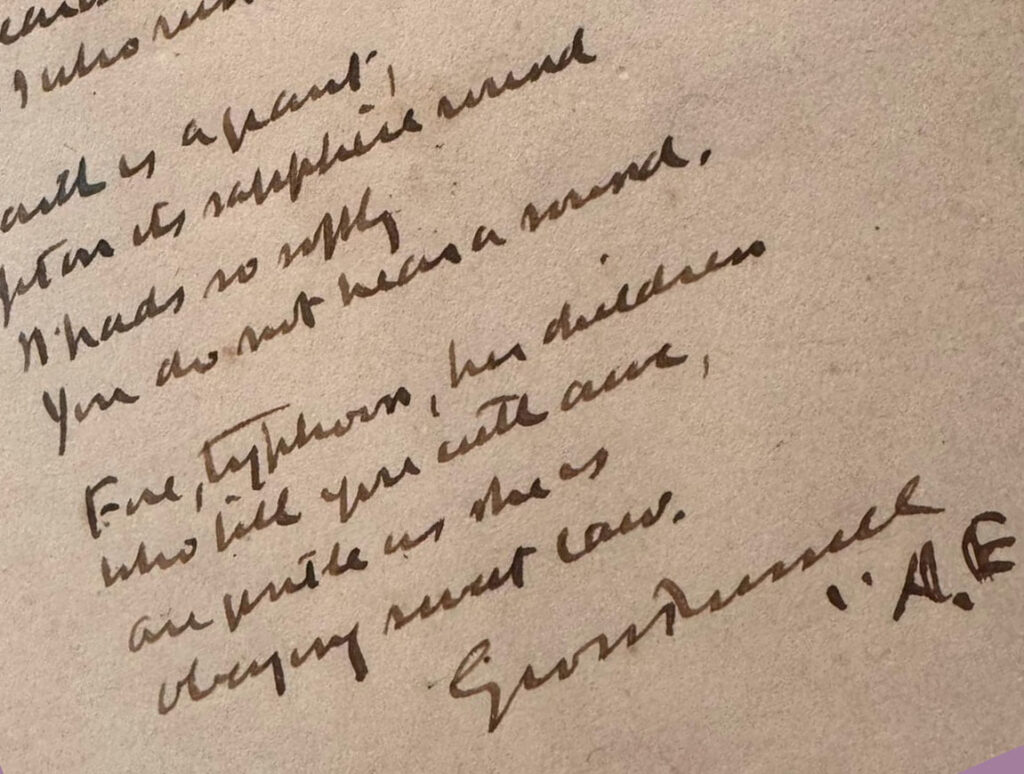 I who
is a giant,
on its sapphire round
It pads so softly
You do not hear a sound.
Fire, typhoon, her children
who fill you with awe,
are gentle as she is
obeying sweet law.
George Russell
"A.E